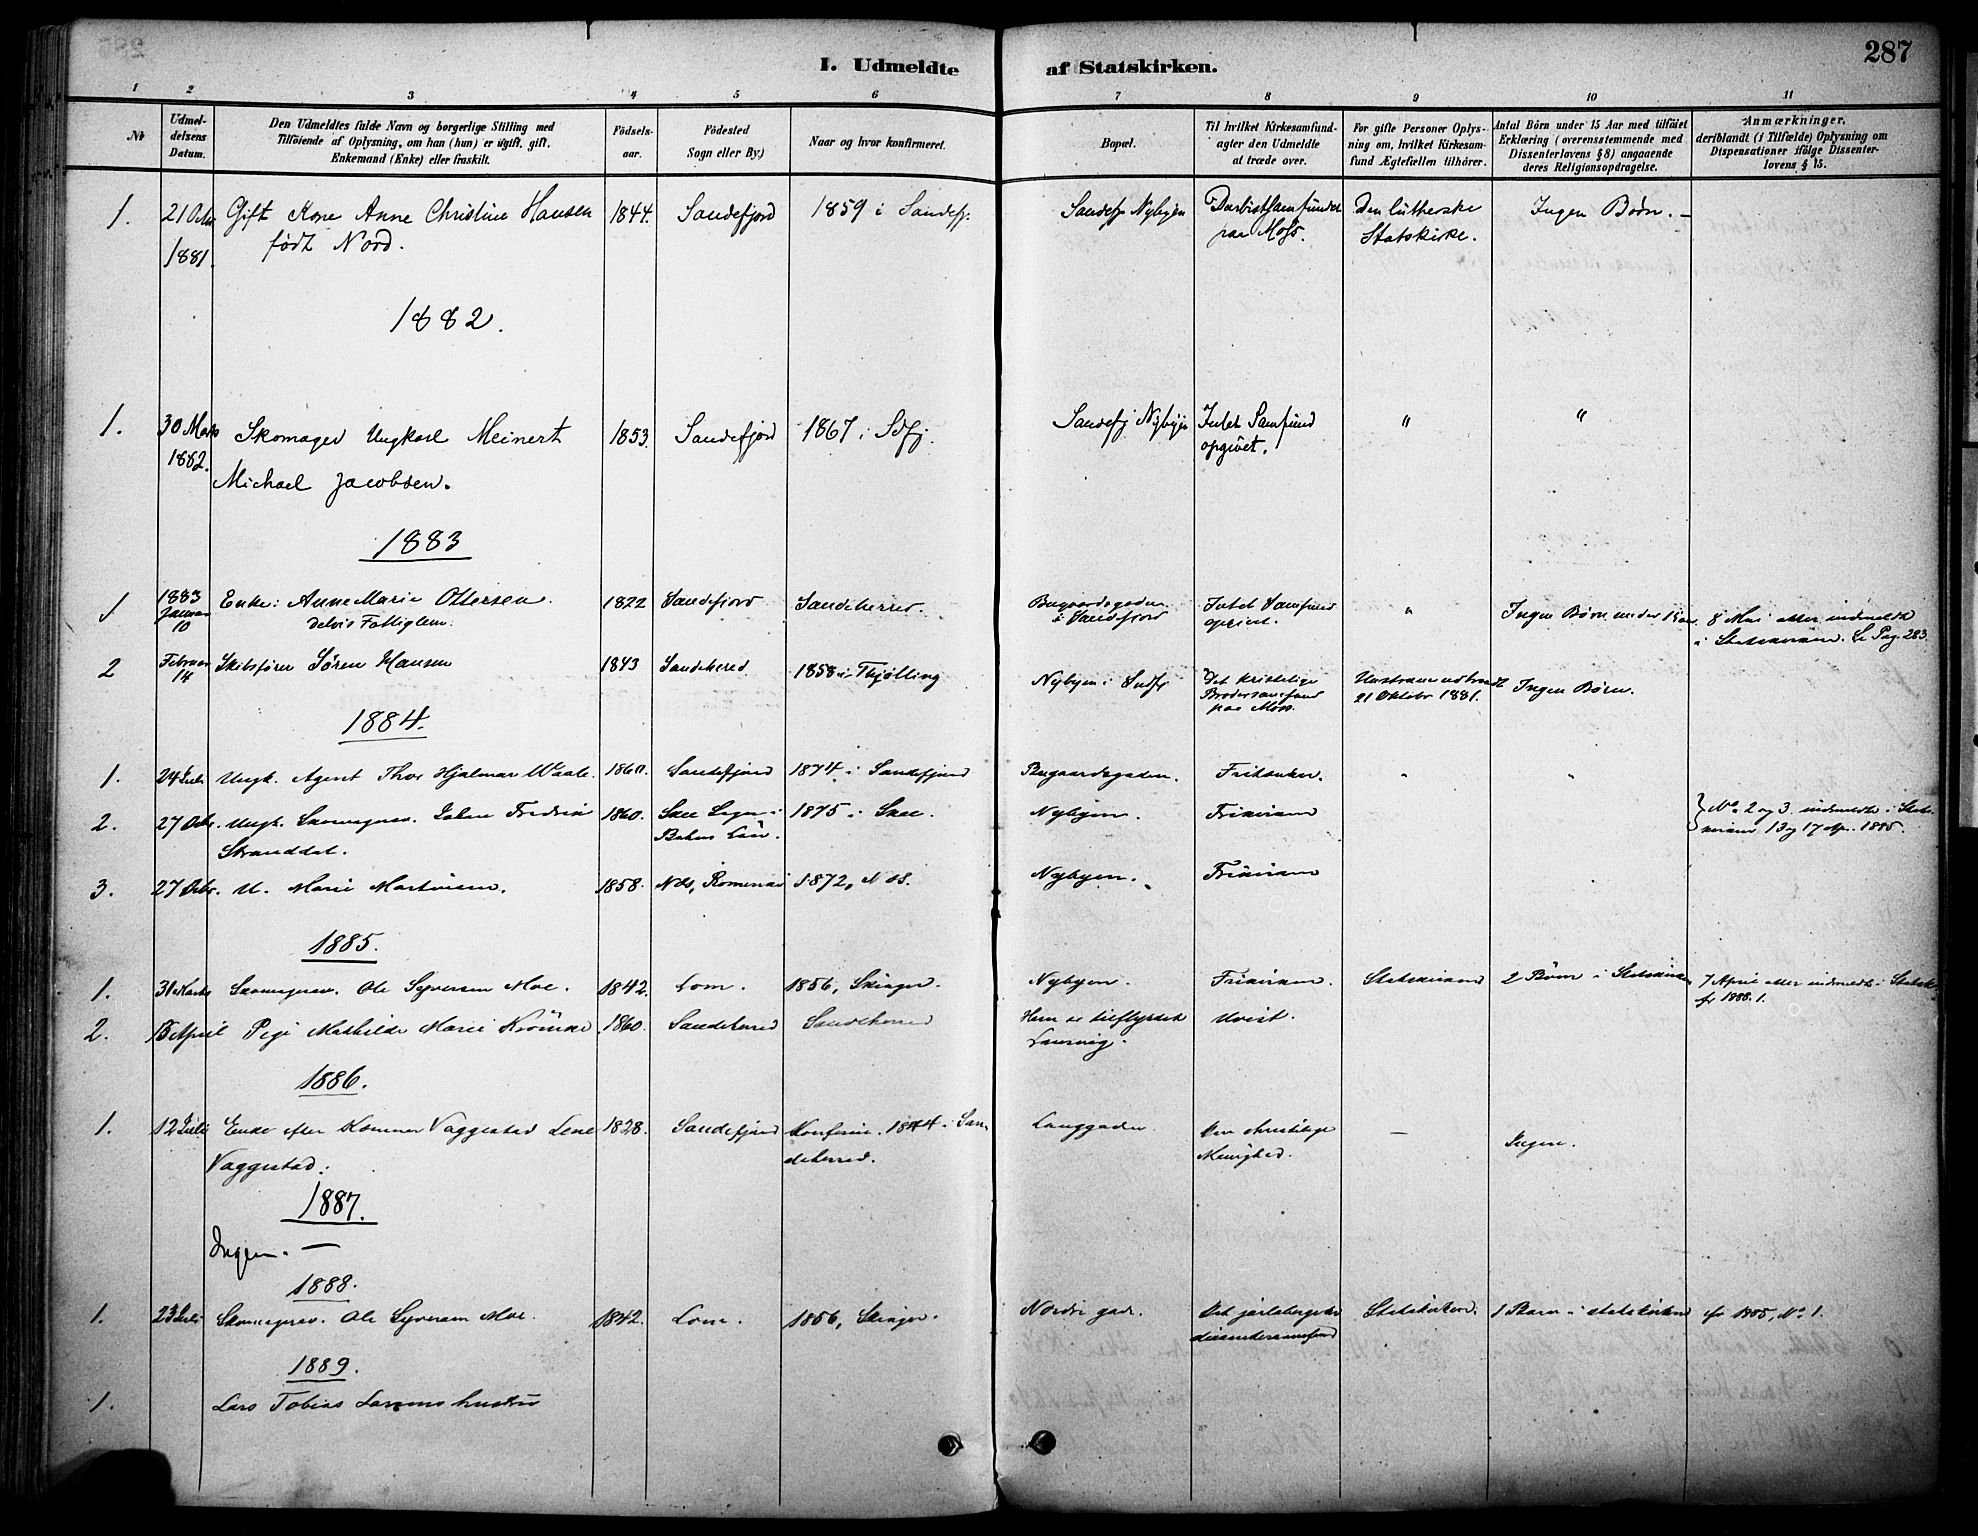 287
I. Udmeldte af Statskirken.
1 2 3 4 5 6 7 8 9 10 11
Nr
Udmel-
delsens
Datum.
Den Udmeldtes fulde Navn og borgerlige Stilling med
Tilföiende af Oplysning, om han (hun) er ugift, gift,
Enkemand (Enke) eller fraskilt.
Födsels-
aar.
Födested
Sogn eller By.)
Naar og hvor konfirmeret.
Bopæl.
Til hvilket Kirkesamfund-
agter den Udmeldte
at træde over.
For gifte Personer Oplys-
ning om, hvilket Kirkesam-
fund Ægtefællen tilhörer.
Antal Börn under 15 Aar med tilföiet
Erklæring (overensstemmende med
Dissenterlovens § 8) angaaende
deres Religionsopdragelse.
Anmærkninger,
deriblandt (i Tilfælde) Oplysning om
Dispensationer ifölge Dissenter-
lovens § 15.
1. 21 Octr Gift Kone Anne Christine Hansen 1844. Sandefjord 1859 i Sandefj. Sandefj Nybyen Darbistsamfundet Den lutherske Ingen Børn. –
1881. født Nord. paa Moss. Statskirke.
1882.
1. 30 Marts Skomager Ungkarl Meinert 1853. Sandefjord 1867 i Sdfj. Sandefj Nybyen Intet Samfund " "
1882. Michael Jacobsen. opgivet.
1883
1 1883 Enke: Anne Marie Ottersen. 1822 Sandefjord Sandeherred. Bugaardsgaden Intet Samfund " Ingen Børn under 15 aar 8 Mai atter indmeldt
Januar 10 delvis Fattiglem. i Sandefjord opgivet. i Statskirken. Se Pag. 283.
2 Februar 14 Skibsfører Søren Hansen 1843 Sandeherred 1858 i Thjølling Nybyen i Sndfj Det kristelige Hustruen udtraadt Ingen Børn.
Brodersamfund 21 Oktobr 1881.
paa Moss.
1884.
1. 24 Juli Ungk. Agent Thor Hjalmar Waale. 1860. Sandefjord 1874 i Sandefjord Bugaardsgaden. Fritænker. " "
2. 27 Octr. Ungk. Skomagersv. Johan Fredrik 1860. Skee Sogn i 1875 i Skee. Nybyen. Frikirken No 2 og 3 indmeldte i Stats-
Stranddal. Bahus Län. kirken 13 og 17 Apr. 1885.
3. 27 Octr. U. Marie Martinsen. 1858. Nes, Romerike 1872, Nes. Nybyen. Frikirken
1885.
1. 31 Marts Skomagersv. Ole Syversen Moe. 1842. Lom. 1856, Skiager. Nybyen. Frikirken. Statskirken 2 Børn i Statskirken 7 April atter indmeldt i Statsk.
fr 1888. 1.
2. 15 April Pige Mathilde Marie 1860. Sandeherred Sandeherred Hun er tilflyttet Uvist.
Laurvig.
1886.
1. 12 Juli Enke efter Vaggestad Lene 1828. Sandefjord Konfirm. 1844 i San- Langgaden Den christelige – Ingen.
Vaggestad. deherred. Menighed.
1887.
Ingen. –
1888.
1. 23 Juli Skomagersv. Ole Syversen Moe. 1842. Lom. 1856, Skiager. Nordre gade. Det jarlsbergske Statskirken. 1 Barn i statskirken fr 1885, No 1.
dissentersamfund
1889.
1. Lars Tobias Larsens hustru